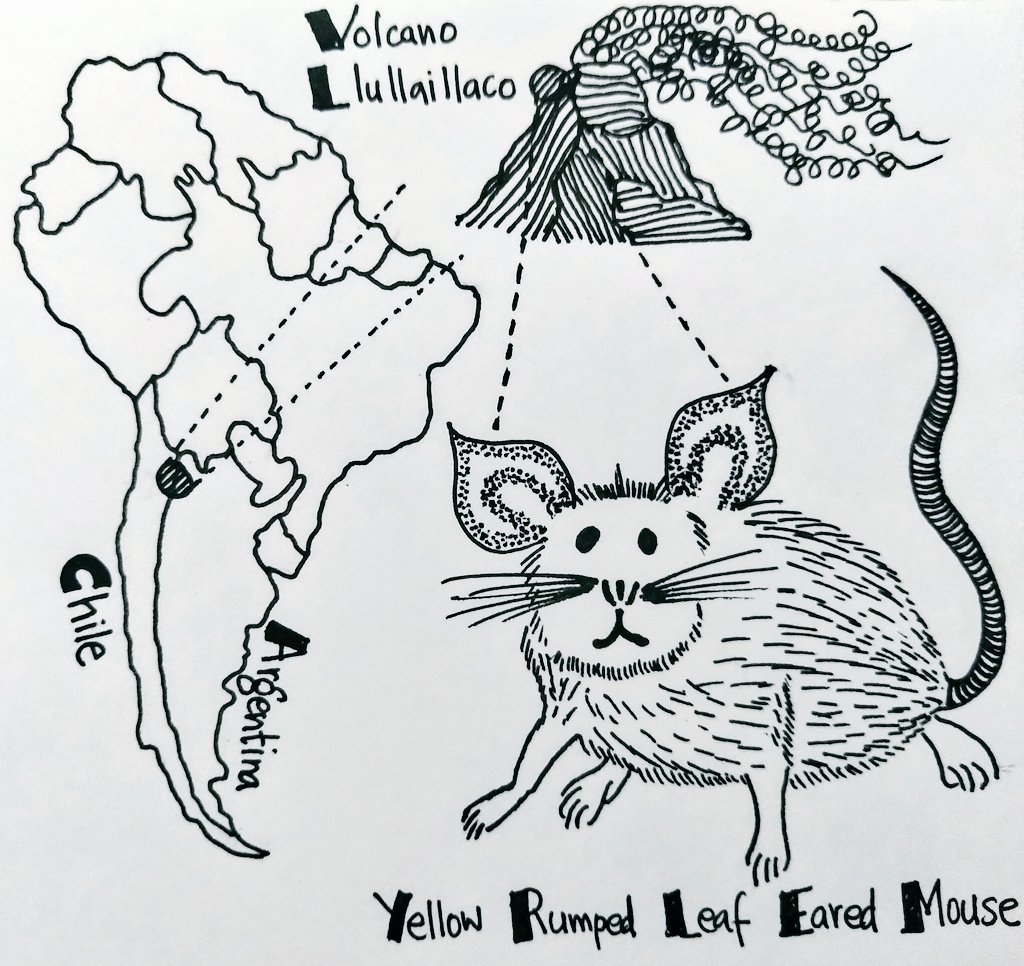 Volcano
Llullaillaco
Chile
Argentina
Yellow Rumped Leaf Eared Mouse